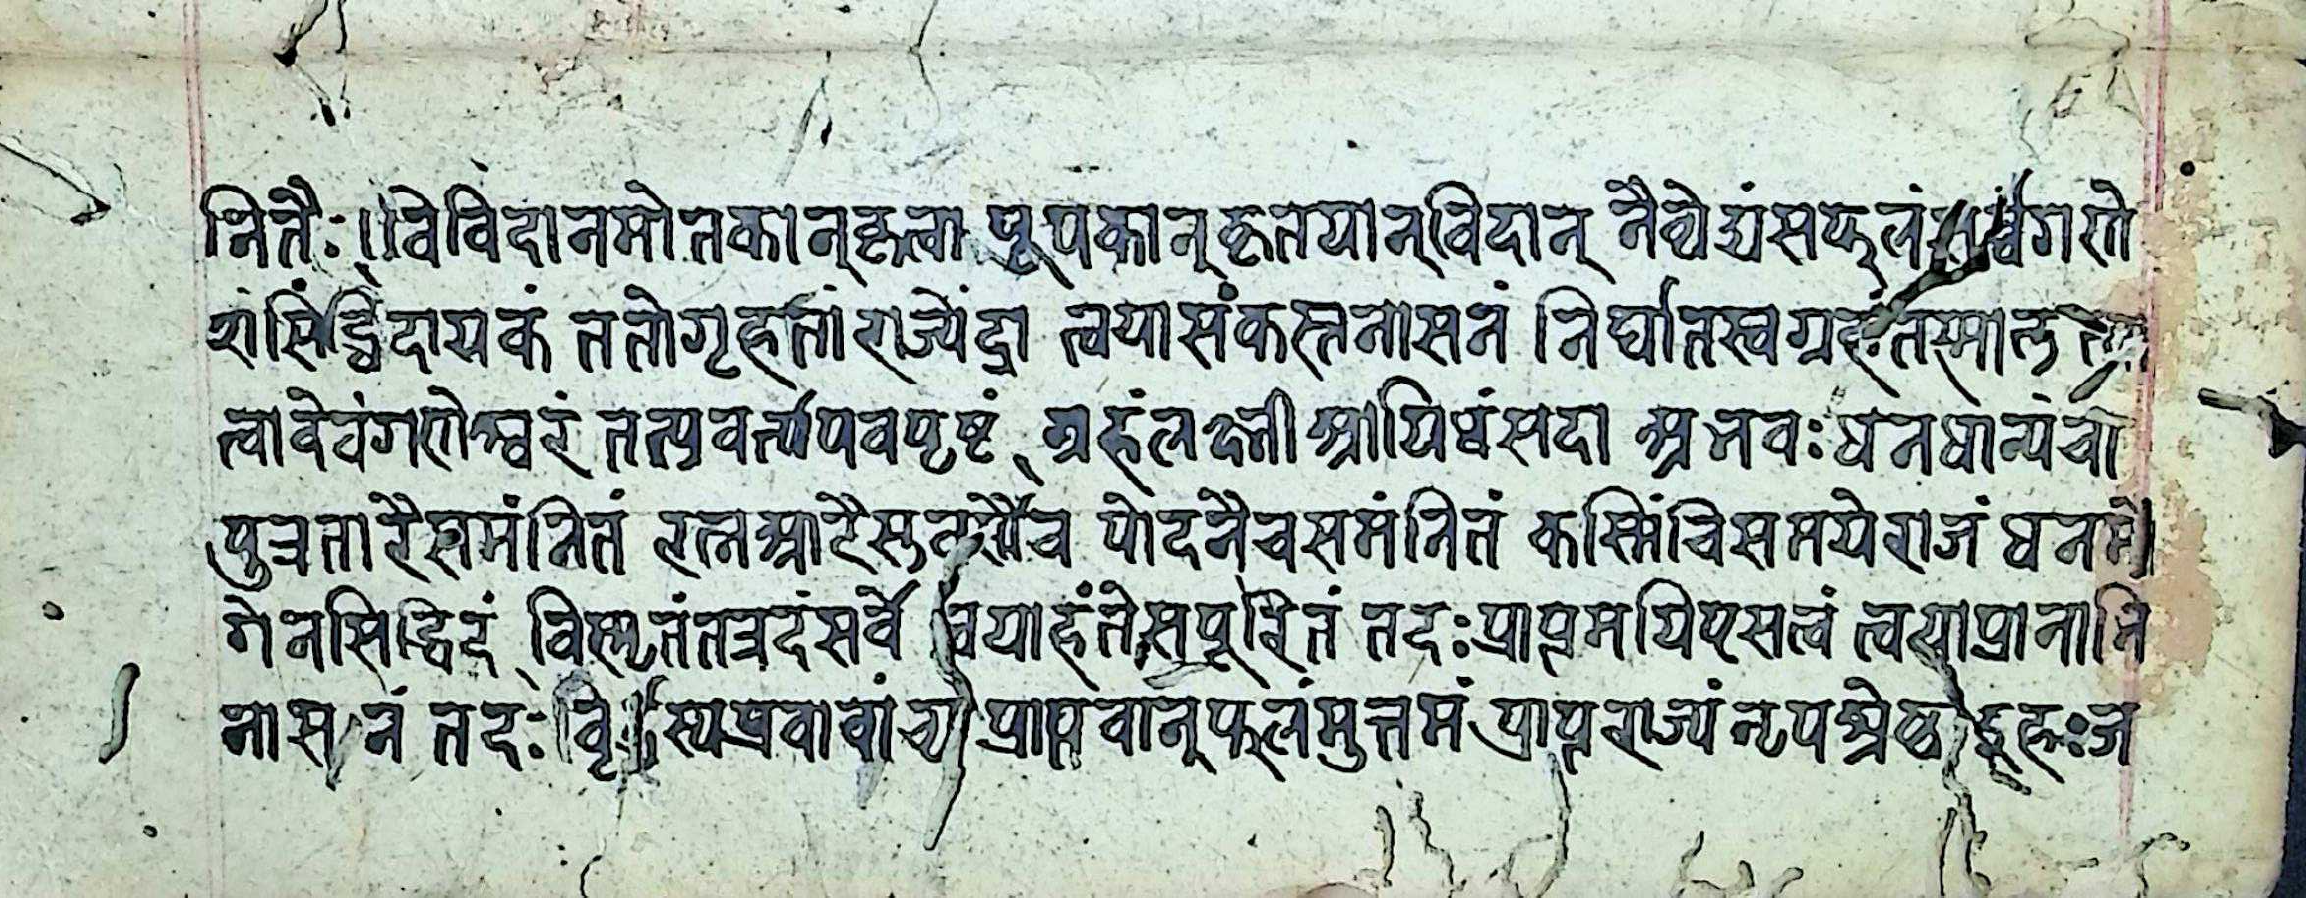 नितैः विविदानमोतकान्कृत्वा पूपकान्कृतयान्विदान् नैव्येद्यंसफलं गणे
शंसिंद्धिदायकं ततोगृह्नतां राज्येंद्रा त्वयासंकस्तनासनं निर्घातस्वग्रहंतस्मा
त्वादेवंगणेश्वरं तत्प्रवर्त्यपवपृष्टं ग्रहंलक्ष्नीश्रायिधंसदा श्रभवः धनधान्यंचा
पुत्रतारैसमंन्नितं रत्नश्राटैस्तुरथैच पोदनैचसमंनितं कस्मिंचिसमयेराजं धनमो
गेनसिद्धिदं विस्मृतंतत्रदंसर्वे याहंतेसपूरितं तदःप्राप्तमयिएसत्वं त्वयाप्रानानि
नासनं तदः प्रवावांच्य प्राप्तवान्फलंमुत्तमं प्राप्तराज्यंनृपश्रेष्ठ